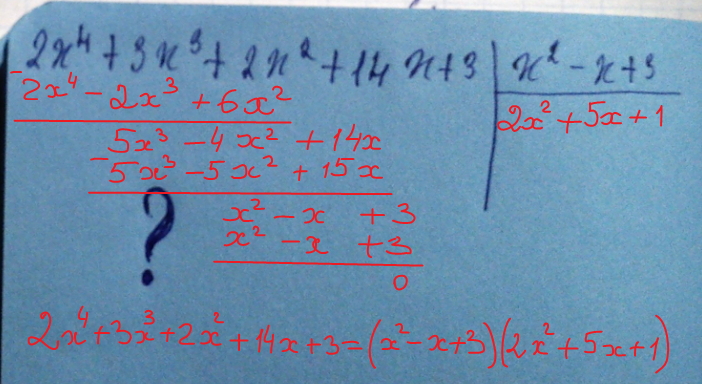 2x⁴ + 3x³ + 2x² + 14x + 3 | x² - x + 3
- 2x⁴ - 2x³ + 6x²
2x² + 5x + 1
5x³ - 4x² + 14x
- 5x³ - 5x² + 15x
?
x² - x + 3
x² - x + 3
0
2x⁴ + 3x³ + 2x² + 14x + 3 = (x² - x + 3)(2x² + 5x + 1)